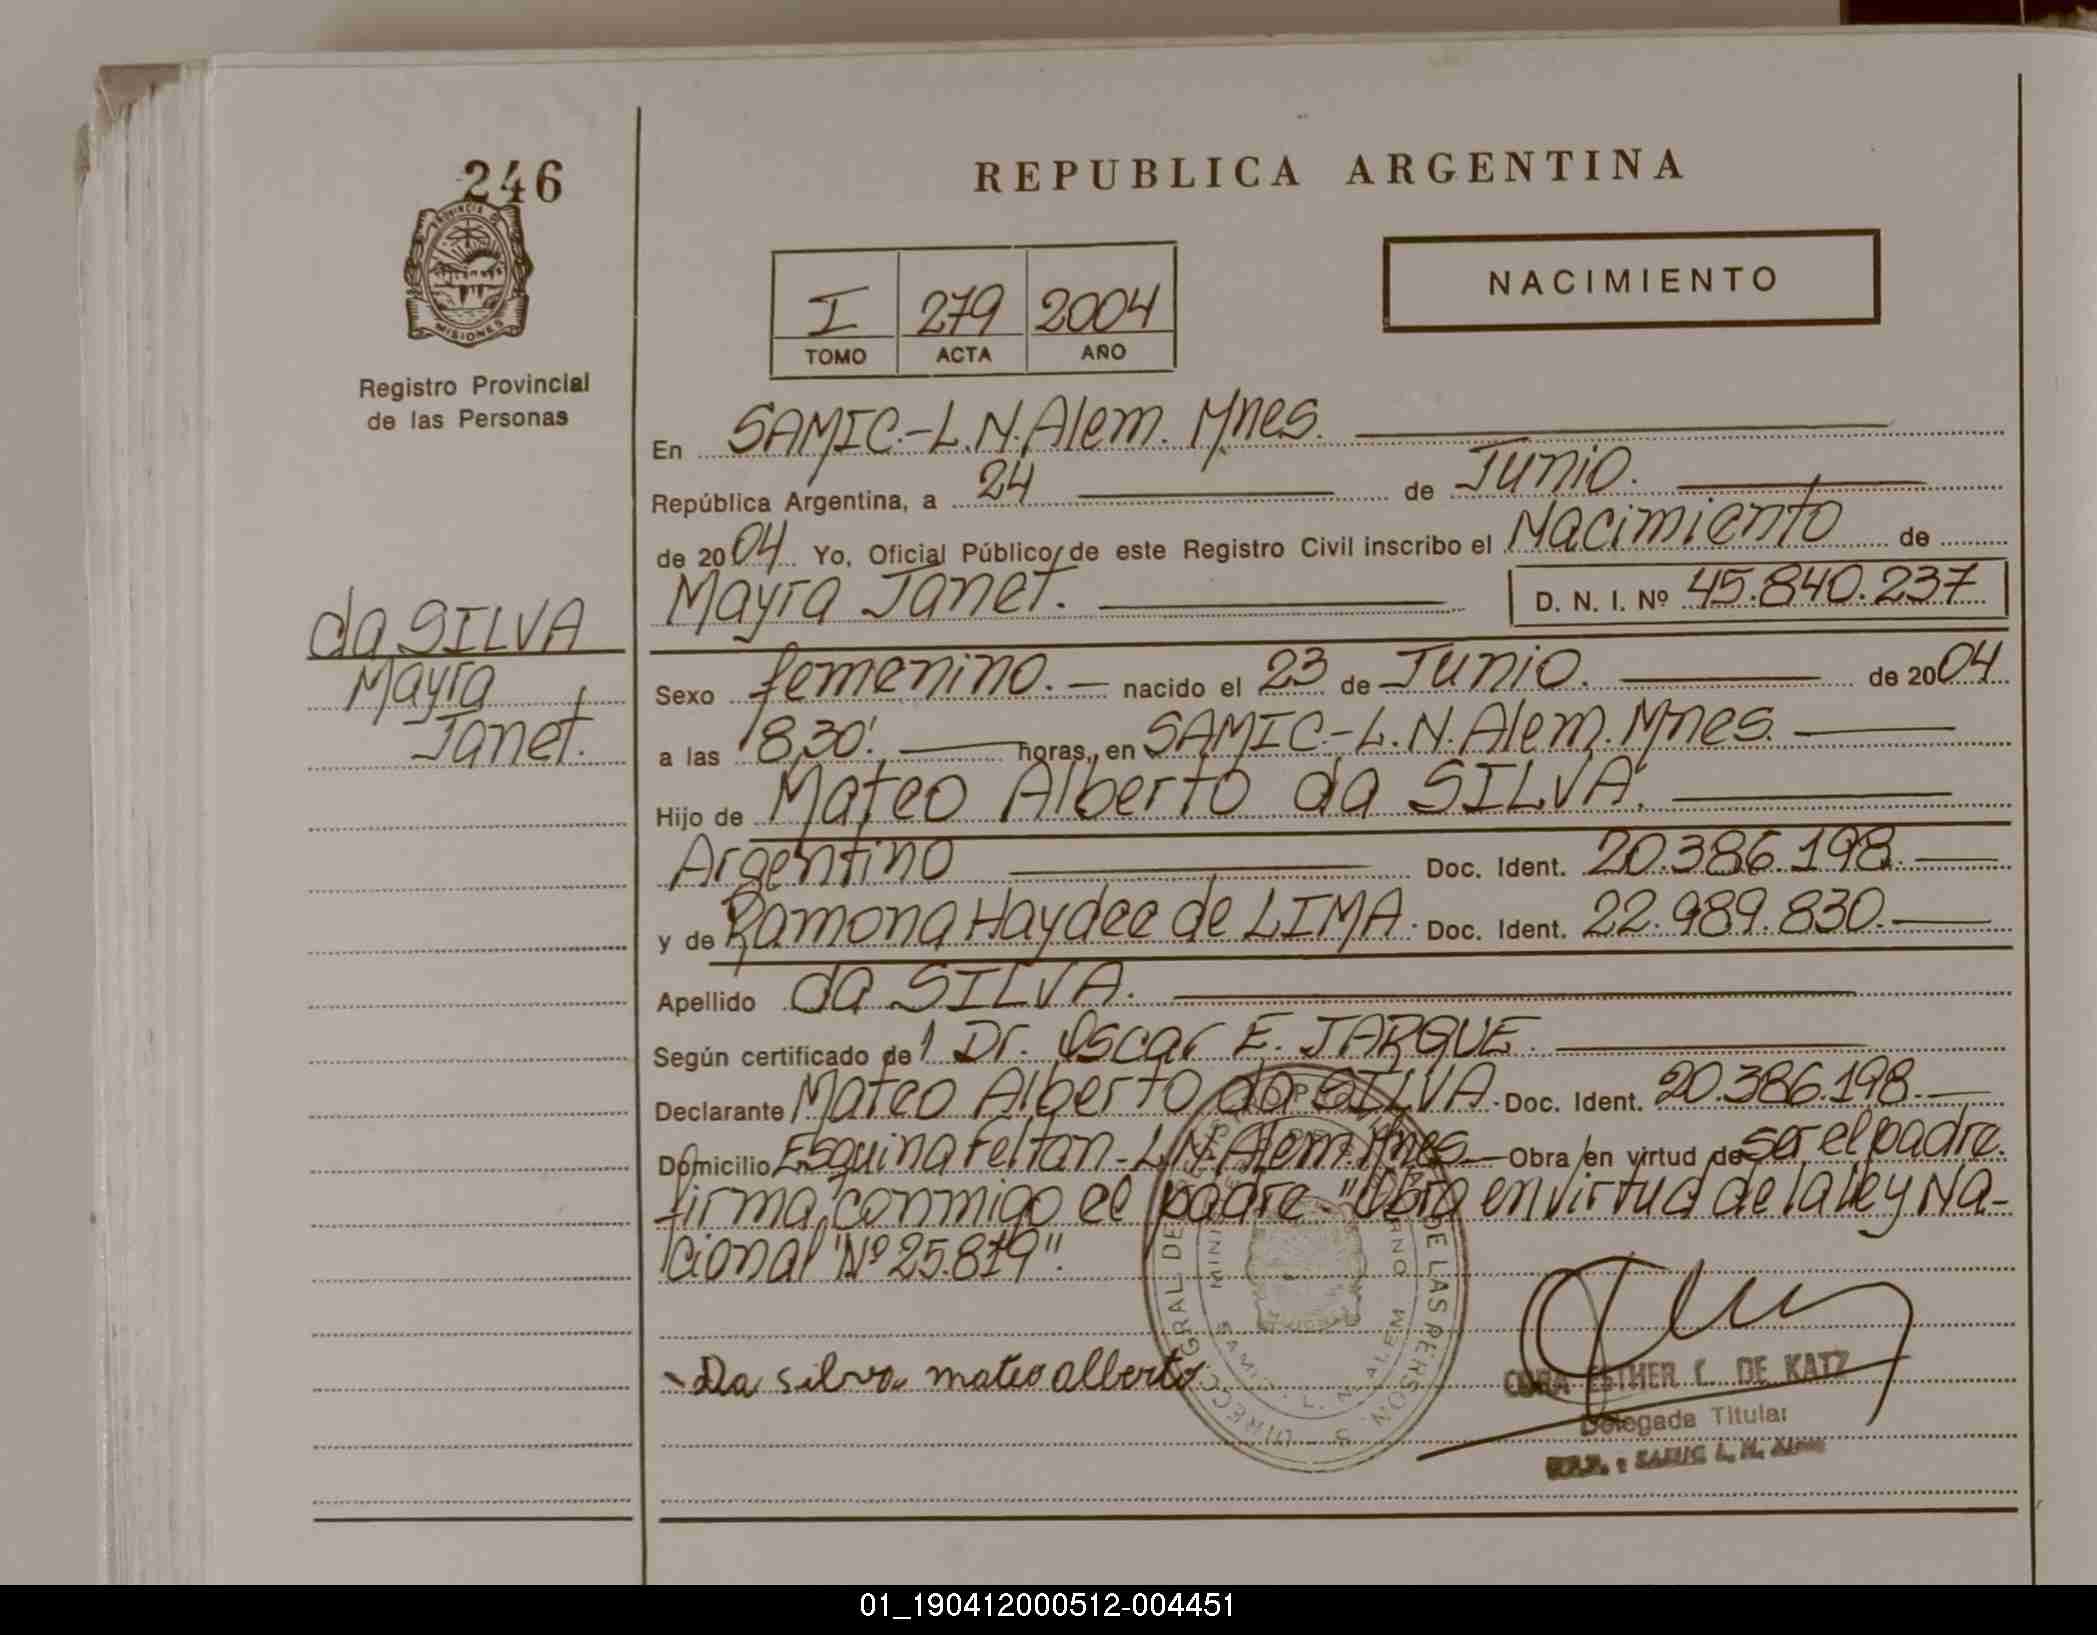 246
PROVINCIA DE
MISIONES
Registro Provincial
de las Personas
da SILVA
Mayra
Janet.
REPUBLICA ARGENTINA
NACIMIENTO
I 279 2004
TOMO ACTA AÑO
En SAMIC.-L.N.Alem. Mnes.
República Argentina, a 24 de Junio.
de 2004 Yo, Oficial Público, de este Registro Civil inscribo el Nacimiento de
Mayra Janet. D. N. I. Nº 45.840.237
Sexo femenino. nacido el 23 de Junio. de 2004
a las 8,30'. horas, en SAMIC.-L.N.Alem. Mnes.
Hijo de Mateo Alberto da SILVA.
Argentino Doc. Ident. 20.386.198.
y de Ramona Haydee de LIMA. Doc. Ident. 22.989.830.
Apellido da SILVA.
Según certificado del Dr. Oscar E. JARQUE.
Declarante Mateo Alberto da SILVA. Doc. Ident. 20.386.198.
Domicilio Esquina Feltan-L.N.Alem.Mnes Obra en virtud de ser el padre.
firma conmigo el padre. "Obro en virtud de la ley Na-
cional Nº 25.819".
Da silva mateo alberto
DIRECC. GRAL DE LAS PERSON S
SAMIC L. N. ALEM
ESTHER DE KATZ
Delegada Titular
SAMIC L. N. Alem
01_190412000512-004451